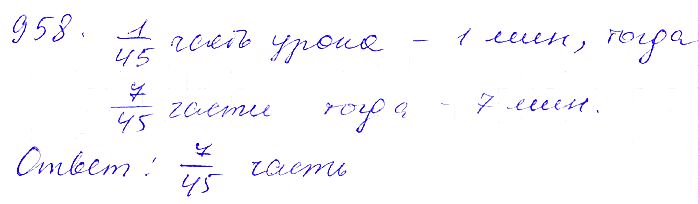 958. 1/45 часть урока – 1 мин, тогда
7/45 части тогда – 7 мин.
Ответ: 7/45 часть